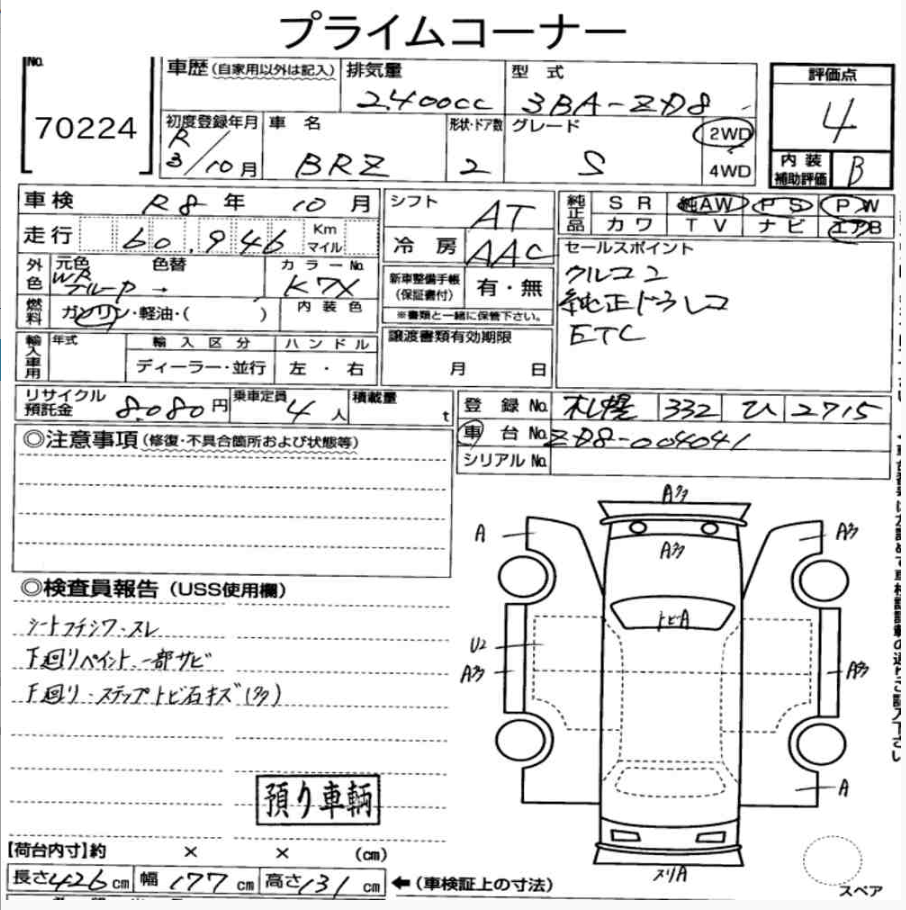 プライムコーナー
No.
70224
車歴 (自家用以外は記入)
排気量
2400cc
型 式
3BA-ZD8
評価点
4
内装補助評価
B
初度登録年月
R3/10月
車 名
BRZ
形状・ドア数
2
グレード
S
2WD
4WD
車検 R8年 10月
シフト
AT
純正品
SR 純AW PS PW
カワ TV ナビ エアB
走行 60,946 Km マイル
冷房
AAC
セールスポイント
クルコン
純正ドラレコ
ETC
外色
元色
WRブルーP →
色替
カラーNo.
K7X
新車整備手帳
(保証書付)
有・無
※書類と一緒に保管下さい。
燃料
ガソリン・軽油・( )
内装色
譲渡書類有効期限
月 日
輸入車用
年式
輸入区分
ハンドル
ディーラー・並行
左・右
リサイクル預託金
8,080円
乗車定員
4人
積載量
t
登録No. 札幌 332 ひ 2715
車台No. ZD8-004041
シリアルNo.
◎注意事項 (修復・不具合箇所および状態等)
◎検査員報告 (USS使用欄)
シートフチシワ・スレ
下廻りペイント、一部サビ
下廻り・ステップトビ石キズ(多)
A多
A
A多
A多
トビA
U2
A多
A多
A
スリA
スペア
預り車輌
【荷台内寸】約 × × (cm)
長さ426cm 幅177cm 高さ131cm
←(車検証上の寸法)